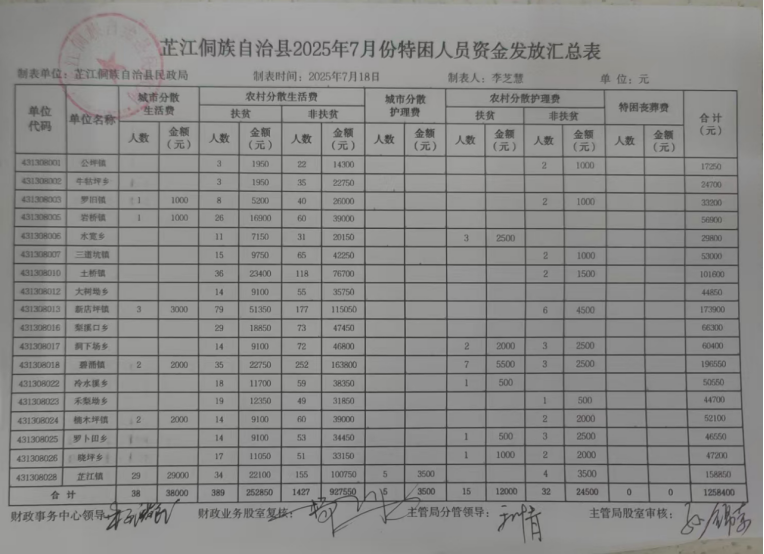 芷江侗族自治县2025年7月份特困人员资金发放汇总表
制表单位：芷江侗族自治县民政局 制表时间：2025年7月18日 制表人：李芝慧 单 位：元
单位代码 单位名称 城市分散生活费 农村分散生活费 城市分散护理费 农村分散护理费 特困丧葬费 合计（元）
扶贫 非扶贫 扶贫 非扶贫
人数 金额（元） 人数 金额（元） 人数 金额（元） 人数 金额（元） 人数 金额（元） 人数 金额（元） 人数 金额（元）
431308001 公坪镇 3 1950 22 14300 2 1000 17250
431308002 牛牯坪乡 3 1950 35 22750 24700
431308003 罗旧镇 1 1000 8 5200 40 26000 2 1000 33200
431308005 岩桥镇 1 1000 26 16900 60 39000 56900
431308006 水宽乡 11 7150 31 20150 3 2500 29800
431308007 三道坑镇 15 9750 65 42250 2 1000 53000
431308010 土桥镇 36 23400 118 76700 2 1500 101600
431308012 大树坳乡 14 9100 55 35750 44850
431308013 新店坪镇 3 3000 79 51350 177 115050 6 4500 173900
431308016 梨溪口乡 29 18850 73 47450 66300
431308017 洞下场乡 14 9100 72 46800 2 2000 3 2500 60400
431308018 碧涌镇 2 2000 35 22750 252 163800 7 5500 3 2500 196550
431308022 冷水溪乡 18 11700 59 38350 1 500 50550
431308023 禾梨坳乡 19 12350 49 31850 1 500 44700
431308024 楠木坪镇 2 2000 14 9100 60 39000 2 2000 52100
431308025 罗卜田乡 14 9100 53 34450 1 500 3 2500 46550
431308026 晓坪乡 17 11050 51 33150 1 1000 2 2000 47200
431308028 芷江镇 29 29000 34 22100 155 100750 5 3500 4 3500 158850
合 计 38 38000 389 252850 1427 927550 5 3500 15 12000 32 24500 0 0 1258400
财政事务中心领导： 财政业务股室复核： 主管局分管领导： 主管局股室审核：